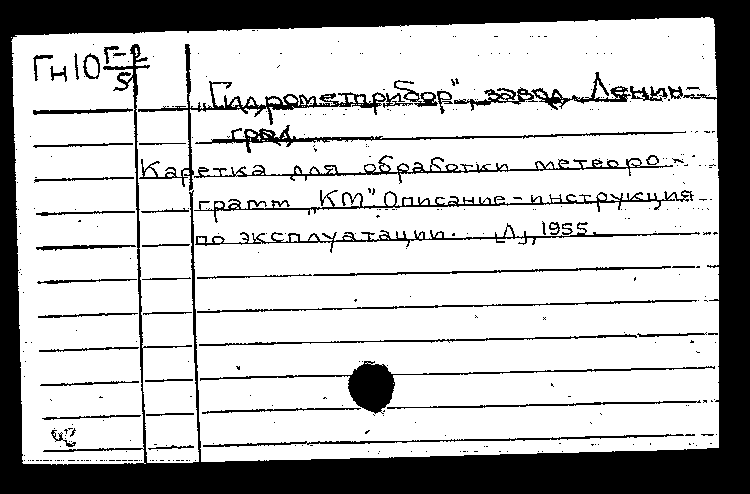 Гн10 Г-2/5
„Гидрометприбор", завод. Ленин-
град.
Каретка для обработки метеоро-
грамм „КМ" Описание-инструкция
по эксплуатации. [Л], 1955.